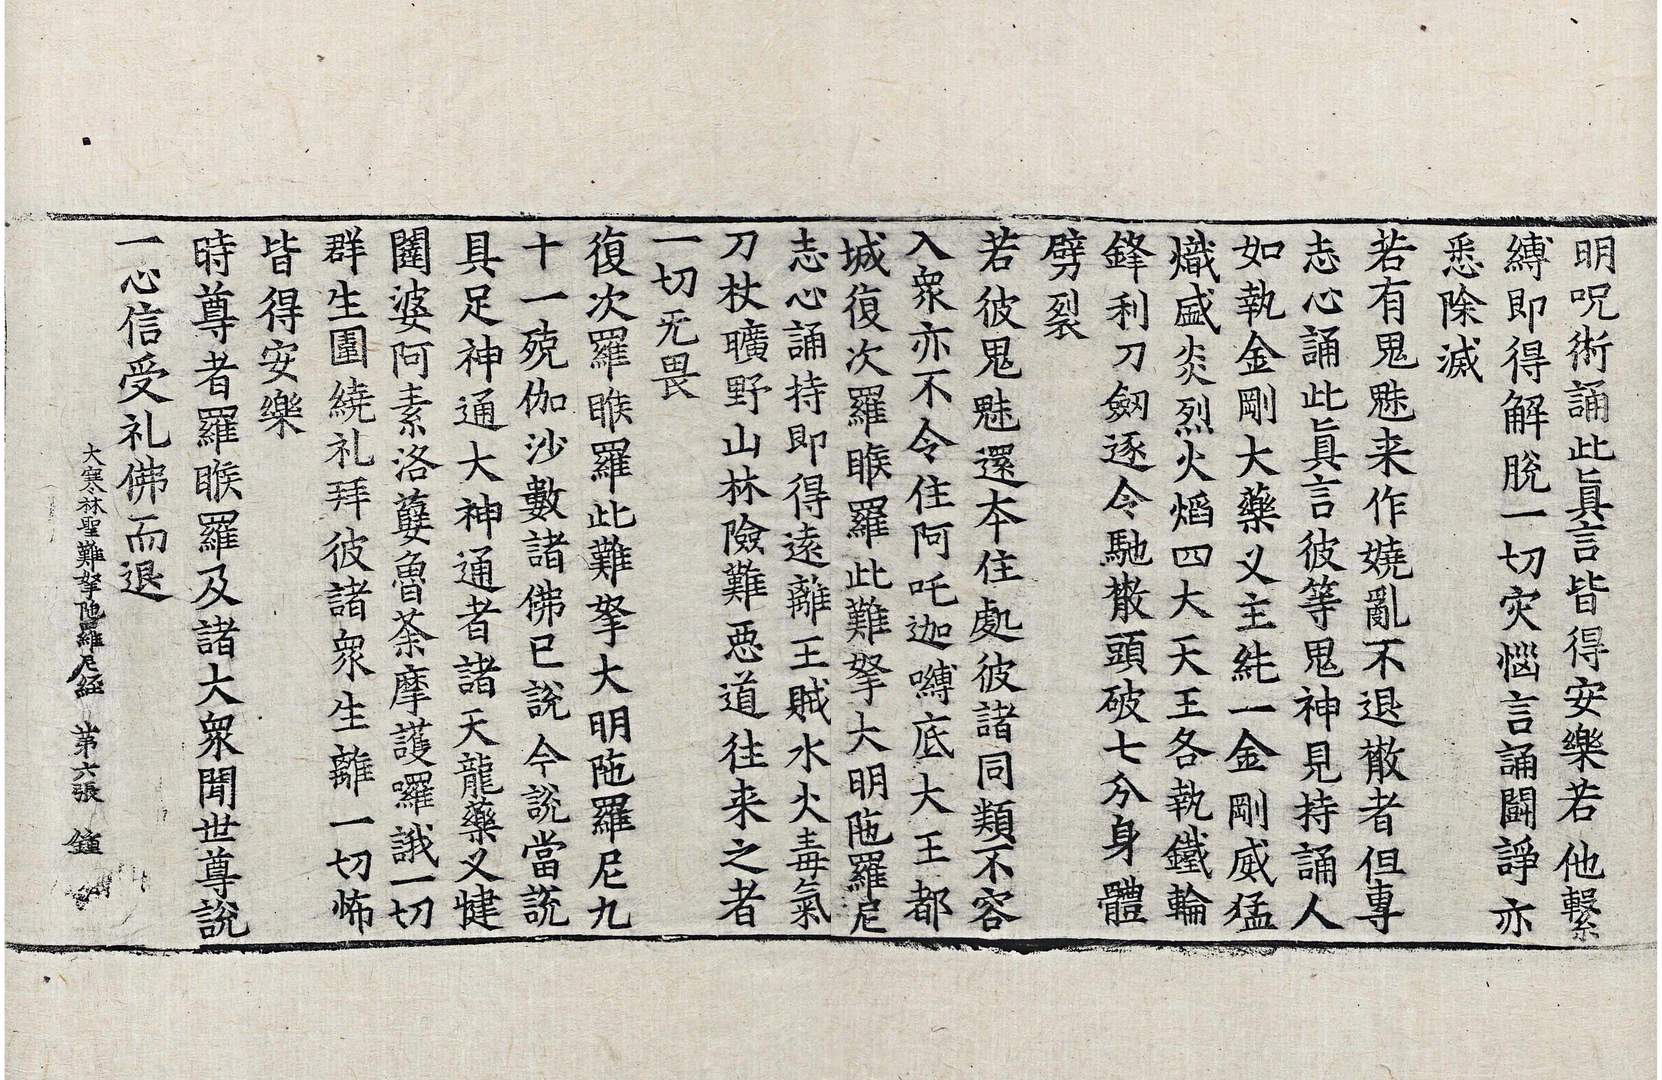 明呪術誦此眞言皆得安樂若他繫
縛即得解脫一切灾惱言誦闘諍亦
悉除滅
若有鬼魅来作嬈亂不退散者但專
志心誦此眞言彼等鬼神見持誦人
如執金剛大藥叉主純一金剛威猛
熾盛炎烈火熖四大天王各執鐵輪
鋒利刀劒逐令馳散頭破七分身體
劈裂
若彼鬼魅還夲住處彼諸同類不容
入衆亦不令住阿吒迦嚩底大王都
城復次羅睺羅此難拏大明陁羅尼
志心誦持即得遠離王賊水火毒氣
刀杖曠野山林險難惡道往来之者
一切无畏
復次羅睺羅此難拏大明陁羅尼九
十一殑伽沙數諸佛已說今說當說
具足神通大神通者諸天龍藥叉犍
闥婆阿素洛蘖魯荼摩護囉誐一切
群生圍繞礼拜彼諸衆生離一切怖
皆得安樂
時尊者羅睺羅及諸大衆聞世尊說
一心信受礼佛而退
大寒林聖難拏陁羅尼經 第六張 鐘